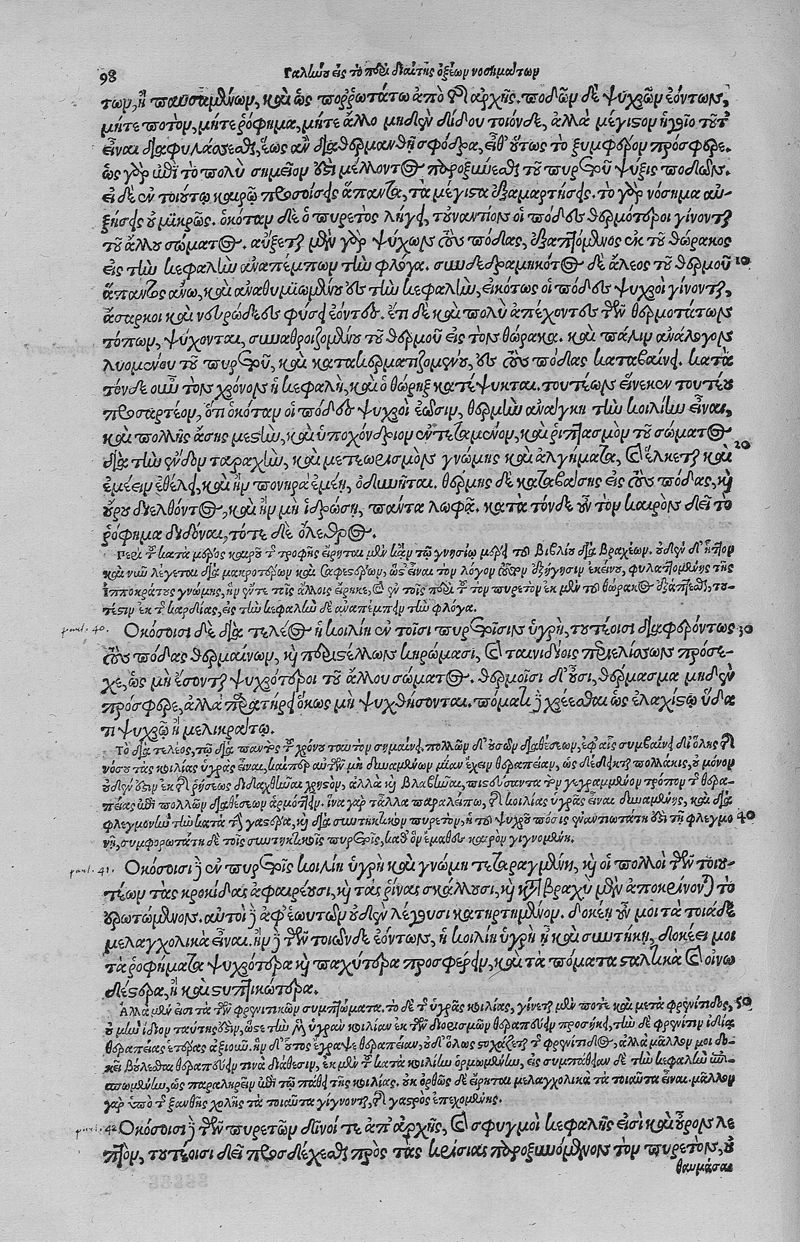 98 Γαληνοῦ εἰς τὸ περὶ διαίτης ὀξέων νοσημάτων
των, ἢ παυσαμένων, καὶ ὡς ποῤῥωτάτω ἀπὸ τῆς ἀρχῆς. ποδῶν δὲ ψύχρῶν ἐόντων,
μήτε ποτὸν, μήτε ῥόφημα, μήτε ἄλλο μηδὲν δίδου τοιόνδε, ἀλλὰ μέγιστον ἡγέο τοῦτ
εἶναι διαφυλάσσεσθαι, ἕως ἂν διαθερμανθῇ σφόδρα, εἶθ' οὕτως τὸ ξυμφέρον πρόσφερε.
ὡς γὰρ ἐπὶ τὸ πολὺ σημεῖον ἐστι μέλλοντος παροξύνεσθαι τοῦ πυρετοῦ ψύξις ποδῶν.
εἰ δὲ ἐν τοιούτῳ καιρῷ προσοίσῃς ἅπαντα, τὰ μέγιστα ἐξαμαρτήσῃς. τὸ γὰρ νόσημα αὐ-
ξήσῃς οὐ μικρῶς. ὁκόταν δὲ ὁ πυρετὸς λήγῃ, τοὐναντίον οἱ πόδες θερμότεροι γίνονται
τοῦ ἄλλου σώματος. αὔξεται μὲν γὰρ ψύχων τοὺς πόδας, ἐξαπτόμενος ἐκ τοῦ θώρακος
εἰς τὴν κεφαλὴν ἀναπέμπων τὴν φλόγα. συνδεδραμηκότος δὲ ἁλέος τοῦ θερμοῦ 10
ἅπαντος ἄνω, καὶ ἀναθυμιωμένου ἐς τὴν κεφαλὴν, εἰκότως οἱ πόδες ψυχροὶ γίνονται,
ἄσαρκοι καὶ νευρώδεες φύσει ἐόντες. ἔτι δὲ καὶ πολὺ ἀπέχοντες τῶν θερμοτάτων
τόπων, ψύχονται, συναθροιζομένου τοῦ θερμοῦ εἰς τὸν θώρακα. καὶ πάλιν ἀνάλογον
λυομένου τοῦ πυρετοῦ, καὶ κατακερματιζομένου, ἐς τοὺς πόδας καταβαίνει. κατὰ
τόνδε οὖν τὸν χρόνον ἡ κεφαλὴ, καὶ ὁ θώρηξ κατέψυκται. τουτέων ἕνεκεν τουτέου
προσαρτέον, ὅτι ὁκόταν οἱ πόδες ψυχροὶ ἔωσιν, θερμὴν ἀνάγκη τὴν κοιλίην εἶναι,
καὶ πολλῆς ἄσης μεστὴν, καὶ ὑποχόνδριον ἐντεταμένον, καὶ ῥιπτασμὸν τοῦ σώματος
διὰ τὴν ἔνδον ταραχὴν, καὶ μετεωρισμὸν γνώμης καὶ ἀλγήματα, καὶ ἕλκεται καὶ 20
ἐμέειν ἐθέλει, καὶ ἢν πονηρὰ ἐμέῃ, ὀδυνῆται. θέρμης δὲ καταβάσης εἰς τοὺς πόδας, καὶ
οὔρου διελθόντος, καὶ ἢν μὴ ἱδρώσῃ, πάντα λωφᾷ. κατὰ τόνδε οὖν τὸν καιρὸν δεῖ τὸ
ῥόφημα διδόναι, τότε δὲ ὄλεθρος.
Περὶ τοῦ κατὰ μέρος καιροῦ τοῦ τροφῆς εἴρηται μὲν κᾂν τῷ γνησίῳ μέρει τοῦ βιβλίου διὰ βραχέων. οὐδὲν δ' ἧττον
καὶ νῦν λέγεται διὰ μακροτέρων καὶ σαφεστέρων, ὡς εἶναι τὸν λόγον τοῦτον ἐξήγησιν ἐκείνου, φυλαττομένης τῆς
Ἱπποκράτους γνώμης, ἣν ἔν τε τοῖς ἄλλοις εἴρηκε, καὶ ἐν τοῖς περὶ τοῦ τὸν πυρετὸν ἐκ μὲν τοῦ θώρακος ἐξάπτεσθαι, του-
τέστιν ἐκ τῆς καρδίας, εἰς τὴν κεφαλὴν δὲ ἀναπέμπειν τὴν φλόγα.
part. 40. Ὁκόσοισι δὲ διὰ τέλεος ἡ κοιλίη ἐν τοῖσι πυρετοῖσιν ὑγρὴ, τουτέοισι διαφερόντως 30
τοὺς πόδας θερμαίνων, καὶ περιστέλλων κηρώμασι, καὶ ταινιδίοις περιελίσσων πρόσε-
χε, ὡς μὴ ἔσονται ψυχρότεροι τοῦ ἄλλου σώματος. θερμοῖσι δ' οὖσι, θέρμασμα μηδὲν
πρόσφερε, ἀλλὰ παρατήρει ὅκως μὴ ψυχθήσονται. πόματι δὲ χρέεσθαι ὡς ἐλαχίστῳ ὕδα
τι ψυχρῷ ἢ μελικράτῳ.
Τὸ διὰ τέλεος, τῷ διὰ παντὸς τοῦ χρόνου ταυτὸν σημαίνει. πολλῶν δ' οὐσῶν διαθέσεων, ἐφ' αἷς συμβαίνει δι' ὅλης τῆς
νόσου τὰς κοιλίας ὑγρὰς εἶναι, καίπερ αὐτῶν μὴ δυναμένων μίαν ἔχειν θεραπείαν, ὡς δέδεικται πολλάκις, οὐ μόνον
οὐδὲν ἔστιν ἐκ τῆς ῥήσεως διδαχθῆναι χρηστὸν, ἀλλὰ καὶ βλαβῆναι, πιστεύσαντα τὸν γεγραμμένον τρόπον τοῦ θερα-
πείας ἐπὶ πολλῶν διαθέσεων ἁρμόττειν. ἵνα γὰρ τἄλλα παραλείπω, τῆς κοιλίας ὑγρᾶς εἶναι δυναμένης, καὶ διὰ
φλεγμονὴν τὴν κατὰ τὴν γαστέρα, καὶ διὰ συντηκτικὸν πυρετὸν, ἡ τοῦ ψυχροῦ πόσις ἐναντιωτάτη ἐστὶ τῇ φλεγμο 40
νῇ, συμφορωτάτη δὲ τοῖς συντηκτικοῖς πυρετοῖς, καθ' ὃν ἐμάθετε καιρὸν γιγνομένη.
part. 41. Ὁκόσοισι δὲ ἐν πυρετοῖς κοιλίη ὑγρὴ καὶ γνώμη τεταραγμένη, καὶ οἱ πολλοὶ τῶν τοιου-
τέων τὰς κροκίδας ἀφαιρέουσι, καὶ τὰς ῥῖνας σκάλλουσι, καὶ κατὰ βραχὺ μὲν ἀποκρίνονται τὸ
ἐρωτώμενον. αὐτοὶ δὲ ἀφ' ἑωυτῶν οὐδὲν λέγουσι κατηρτημένον. δοκέει οὖν μοι τὰ τοιάδε
μελαγχολικὰ εἶναι. ἢν δὲ τῶν τοιῶνδε ἐόντων, ἡ κοιλίη ὑγρὴ ᾖ καὶ συντήκῃ, δοκέει μοι
τὰ ῥοφήματα ψυχρότερα καὶ παχύτερα προσφέρειν, καὶ τὰ πόματα σταλτικὰ καὶ οἰνω
δέστερα, ἢ καὶ στυπτικώτερα.
Ἀλλὰ μέν εἰσι τὰ τῶν φρενιτικῶν συμπτώματα. τὸ δὲ τῆς ὑγρᾶς κοιλίας, γίνεται μέν ποτε καὶ μετὰ φρενίτιδος, 50
οὐ μὴν ἴδιον ταύτης ἐστὶν, ὥστε τὴν μὲν ὑγρὰν κοιλίαν ἐκ τῶν διορισμῶν θεραπεύειν προσήκει, τὴν δὲ φρενῖτιν ἰδίας
θεραπείας ἑτέρας ἀξιοῦν. ἣν δ' οὗτος ἔγραψε θεραπείαν, οὐδ' ὅλως στοχάζεται τῆς φρενίτιδος, ἀλλὰ μᾶλλόν μοι δο-
κεῖ βούλεσθαι θεραπεύειν τινὰ διάθεσιν, ἐκ μὲν τῶν κατὰ κοιλίαν ὁρμωμένην, εἰς συμπάθειαν δὲ τὴν κεφαλὴν ἐπι-
σπωμένην, ὡς παραληρεῖν ἐπὶ τῷ πάθει τῆς κοιλίας. οὐκ ὀρθῶς δὲ εἴρηται μελαγχολικὰ τὰ τοιαῦτα εἶναι. μᾶλλον
γὰρ ὑπὸ τῆς ξανθῆς χολῆς τὰ τοιαῦτα γίγνονται, τῆς γαστρὸς ἐπεχομένης.
part. 42. Ὁκόσοισι δὲ τῶν πυρετῶν δῖνοί τε ἀπ' ἀρχῆς, καὶ σφυγμοὶ κεφαλῆς εἰσὶ καὶ οὖρον λε
πτὸν, τουτέοισι δεῖ προσδέχεσθαι πρὸς τὰς κρίσιας παροξυνόμενον τὸν πυρετὸν, οὐ
θαυμάσαι